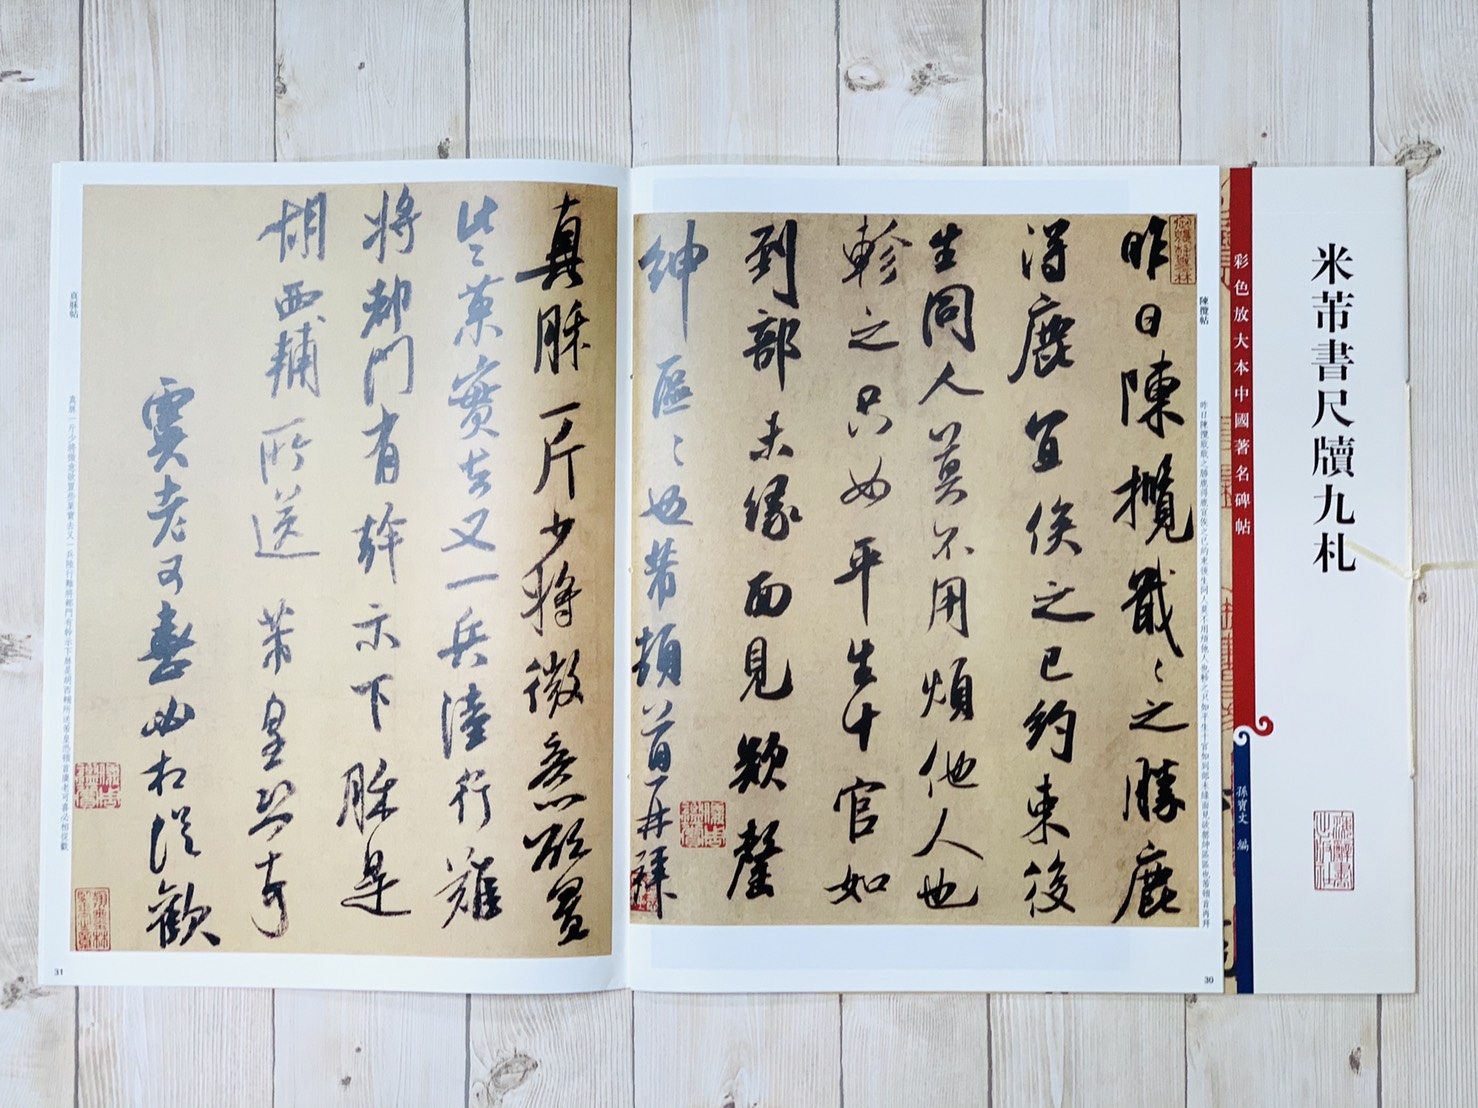 米芾書尺牘九札
彩色放大本中國著名碑帖
孫寶文 編
陳攬帖
昨日陳攬戢戢之勝鹿
得鹿宜俟之已約束後
生同人莫不用煩他人也
軫之只如平生十官如
到部未緣面見欵罄
紳區區也芾頓首再拜
30
真酥帖
真酥一斤少將微意欲置
些果實去又一兵陸行難
將都門有幹示下酥是
胡西輔所送芾皇恐頓首
虞老可喜必相從歡
31